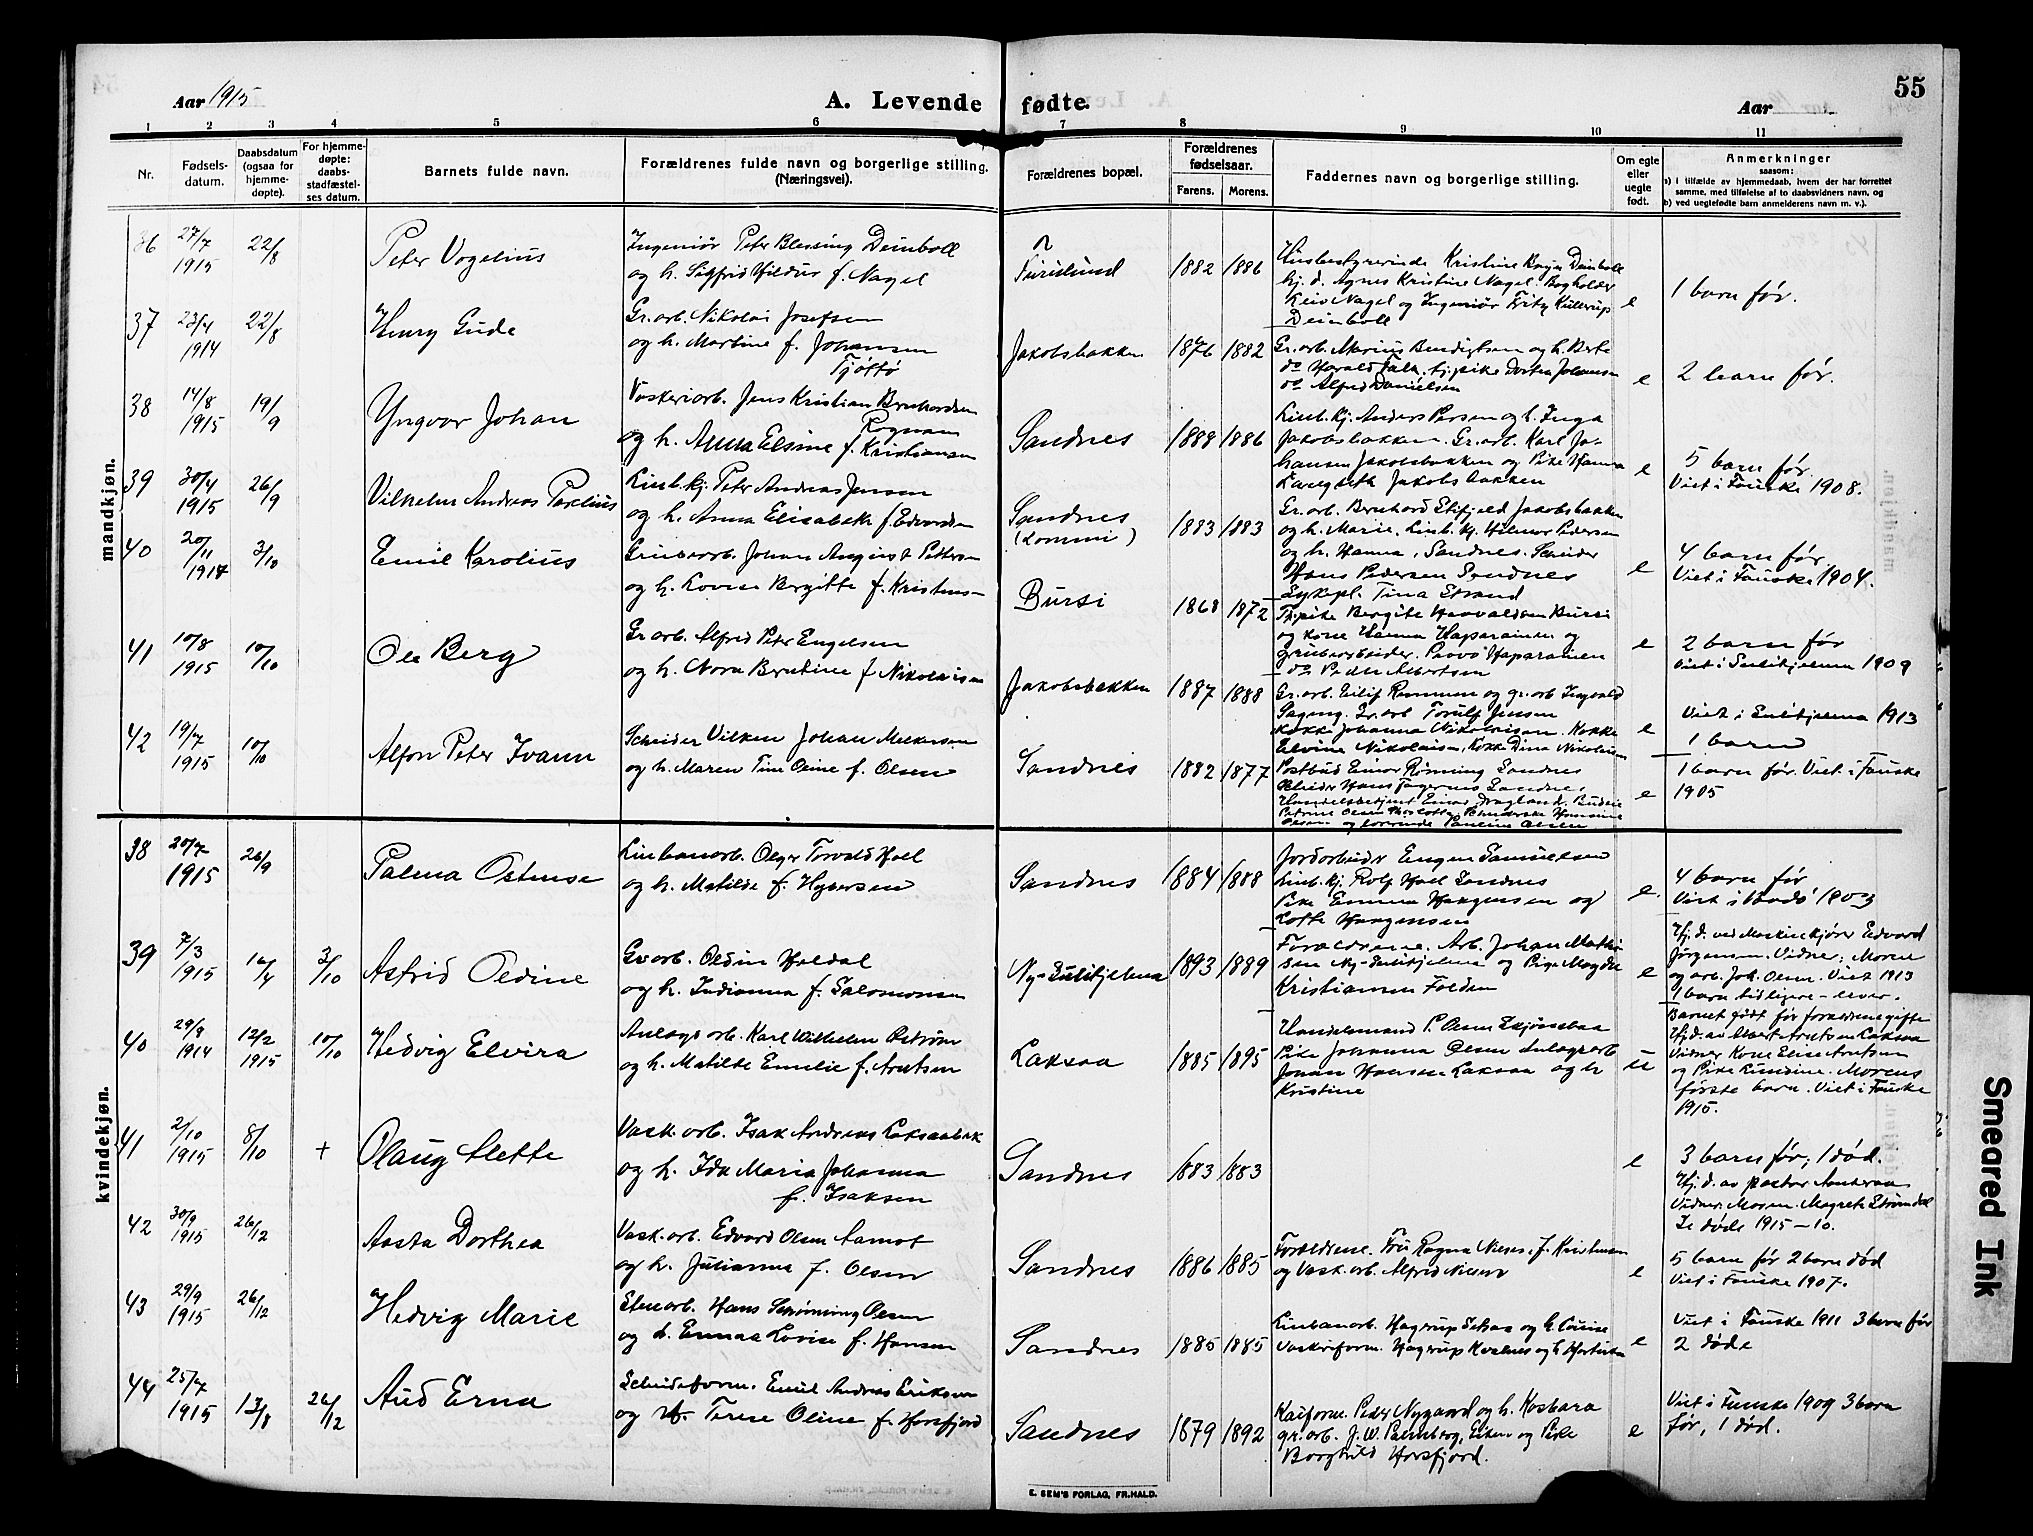 Aar 1915
A. Levende fødte.
Aar
55
1 2 3 4 5 6 7 8 9 10 11
Nr.
Fødsels-
datum.
Daabsdatum
(ogsaa for
hjemme-
døpte).
For hjemme-
døpte:
daabs-
stadfæstel-
ses datum.
Barnets fulde navn.
Forældrenes fulde navn og borgerlige stilling.
(Næringsvei).
Forældrenes bopæl.
Forældrenes
fødselsaar.
Farens. Morens.
Faddernes navn og borgerlige stilling.
Om egte
eller
uegte
født.
Anmerkninger
saasom:
a) i tilfælde av hjemmedaab, hvem der har forrettet
samme, med tilføielse af to daabsvidners navn, og
b) ved uegtefødte barn anmelderens navn m. v.).
mandkjøn.
36 27/7 1915 22/8 Peter Vogelius
Ingeniør Peter Blessing Deinboll
og h. Sigfrid Hildur f. Nagel
Furulund 1882 1886
Husbestyrerinde Kristine Deinboll
hj. d. Agnes Kristine Nagel. Bogholder
Nagel og Ingeniør Fritz Kullerup
Deinboll
e 1 barn før.
37 23/4 1914 22/8 Henry Gude
Gr. arb. Nikolai Josefsen
og h. Martine f. Johansen
Tjøtta
Jakobsbakken 1876 1882
Gr. arb. Marius Bendigtsen og h. Berte
do Harald Falk, tj.pike Dorthea Johansen
do Alfred Danielsen
e 2 barn før.
38 14/8 1915 19/9 Yngvar Johan
Vaskeriarb. Jens Kristian Bernhardsen
Rognan
og h. Anna Elsine f. Kristiansen
Sandnes 1888 1886
Linb. kj. Anders Persen og h. Inga
Jakobsbakken. Gr. arb. Karl Jo-
hansen Jakobsbakken og Pike Hanna
Langseth Jakobsbakken
e 5 barn før.
Viet i Fauske 1908.
39 30/4 1915 26/9 Vilhelm Andreas Parelius
Linb. kj. Peter Andreas Jensen
og h. Anna Elisabeth f. Edvardsen
Sandnes
1883 1883
Gr. arb. Bernhard Jakobsbakken
og h. Marie. Linb. kj. Hilmar Pedersen
og h. Hanna, Sandnes. Scheider
Hans Pedersen Sandnes
Sykepl. Tina Strand
e 4 barn før
Viet i Fauske 1904.
40 20/11 1914 3/10 Emil Karolius
Grubearb. Johan August Pettersen
og h. Lovise Bergitte f. Kristens-
Bursi 1868 1872
Tj.pike Bergite Harvaldsen Bursi
og kone Hanna Haparainen og
grubearbeider. Paavo Haparainen
do Peder Albertsen
e 2 barn før
Viet i Sulitjelma 1909
41 10/8 1915 10/10 Ole Berg
Gr. arb. Alfred Peter Engelsen
og h. Nora Berntine f. Nikolaisen
Jakobsbakken 1887 1888
Gr. arb. Eilif Rasmussen og gr. arb Ingvald
Gr. arb Torulf Jensen
Kokke Johanna Nikolaisen. Kokke
Elvine Nikolaisen, Kokke Dina Nikolaisen
e Viet i Sulitjelma 1913
1 barn
42 19/7 1915 10/10 Alfon Peter Ivann
Scheider Vilken Johan Melkersen
og h. Maren Tine Oline f. Olsen
Sandnes 1882 1877
Postbud Einar Rønning Sandnes
Scheider Hans Fagernes Sandnes,
Handelsbetjent Einar Dragland, Budeie
Petrine Olsen
Olsen og Pauline Olsen
e 1 barn før. Viet i Fauske
1905
kvindekjøn.
38 20/7 1915 26/9 Palma Ostense
Linbanarb. Olger Torvald Hoel
og h. Matilde f. Hybersen
Sandnes 1884 1888
Jordarbeider Eugen Samuelsen
Linb. kj. Rolf Hoel Sandnes
Pike Emma Haagensen og
Lotte Haagensen
e. 4 barn før
Viet i Bodø 1903
39 7/3 1915 16/4 3/10 Astrid Oldine
Gr arb. Oldin Haldal
og h. Indianna f. Salomonsen
Ny-Sulitjelma 1893 1889
Forældrene. Arb. Johan Mathi-
sen Ny-Sulitjelma og Pige Magda
Kristiansen Folden
e Hj. d. ved Maskinkjører Edvard
Jørgensen. Vidner: Moren
og arb. Joh. Olsen. Viet 1913
1 barn tidligere - lever.
40 29/9 1914 12/2 1915 10/10 Hedvig Elvira
Anlægs arb. Karl Wilhelm Østrøm
og h. Matilde Emelie f. Arntsen
Laksaa 1885 1895
Handelsmand P. Olsen
Pike Johanna Olsen Anlægsarb
Johan Hansen Laksaa og h
Kristine
u Barnet født før forældrene gifte
Hj. d. av Albert Arntsen Laksaa
Vidner Kone Elise Arntsen
og Pike Rundine. Morens
første barn. Viet i Fauske
1915.
41 2/10 1915 8/10 + Olaug Alette
Vask. arb. Isak Andreas Laksaabak
og h. Ida Maria Johanna
f. Isaksen
Sandnes 1883 1883
e 3 barn før, 1 død.
Hj. d. av pastor
Vidner: Moren. Magrete Strømdal
døde 1915-10.
42 30/9 1915 26/12 Aasta Dorthea
Vask. arb. Edvard Olsen Aamot
og h. Julianna f. Olsen
Sandnes 1886 1885
Forældrene. Fru Ragna Nilsen f. Kristensen
og Vask. arb. Alfred Nilsen
e 5 barn før 2 barn død
Viet i Fauske 1907.
43 29/9 1915 26/12 Hedvig Marie
Stenarb. Hans Schrøning Olsen
og h. Emma Lovise f. Hansen
Sandnes 1885 1885
Linbanarb. Hagerup og h. Louise
Vaskeriform. Hagerup Kvalnes og h. Hartvika
e Viet i Fauske 1911 3 barn før
2 døde
44 25/7 1915 13/8 26/12 Aud Erna
Scheideform. Emil Andreas Eriksen
og H. Terese Oline f. Horsfjord
Sandnes 1879 1892
Kaiform. Peder Nygaard og h. Kosbara
gr. arb. J. W. Palmberg, Enken og Pike
Borghild Horsfjord.
e Viet i Fauske 1909 3 barn
før, 1 død.
E. SEM'S FORLAG, FR.HALD.
Smeared Ink